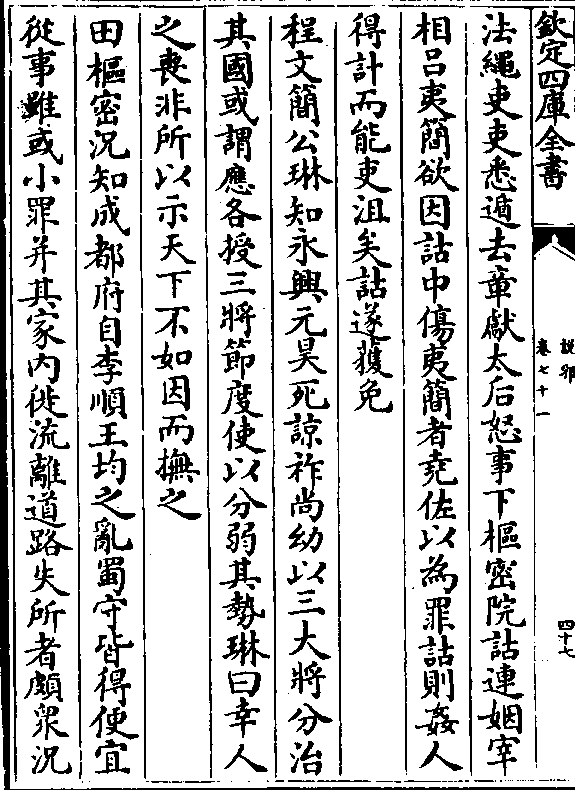 欽定四庫全書
說郛
卷七十一
四十七
法繩吏吏悉遁去章獻太后怒事下樞密院詰連姻宰
相呂夷簡欲因詰中傷夷簡者堯佐以為罪詰則姦人
得計而能吏沮矣詰遂獲免
程文簡公琳知永興元昊死諒祚尚幼以三大將分治
其國或謂應各授三將節度使以分弱其勢琳曰幸人
之喪非所以示天下不如因而撫之
田樞密況知成都府自李順王均之亂蜀守皆得便宜
從事雖或小罪并其家内徙流離道路失所者頗衆況